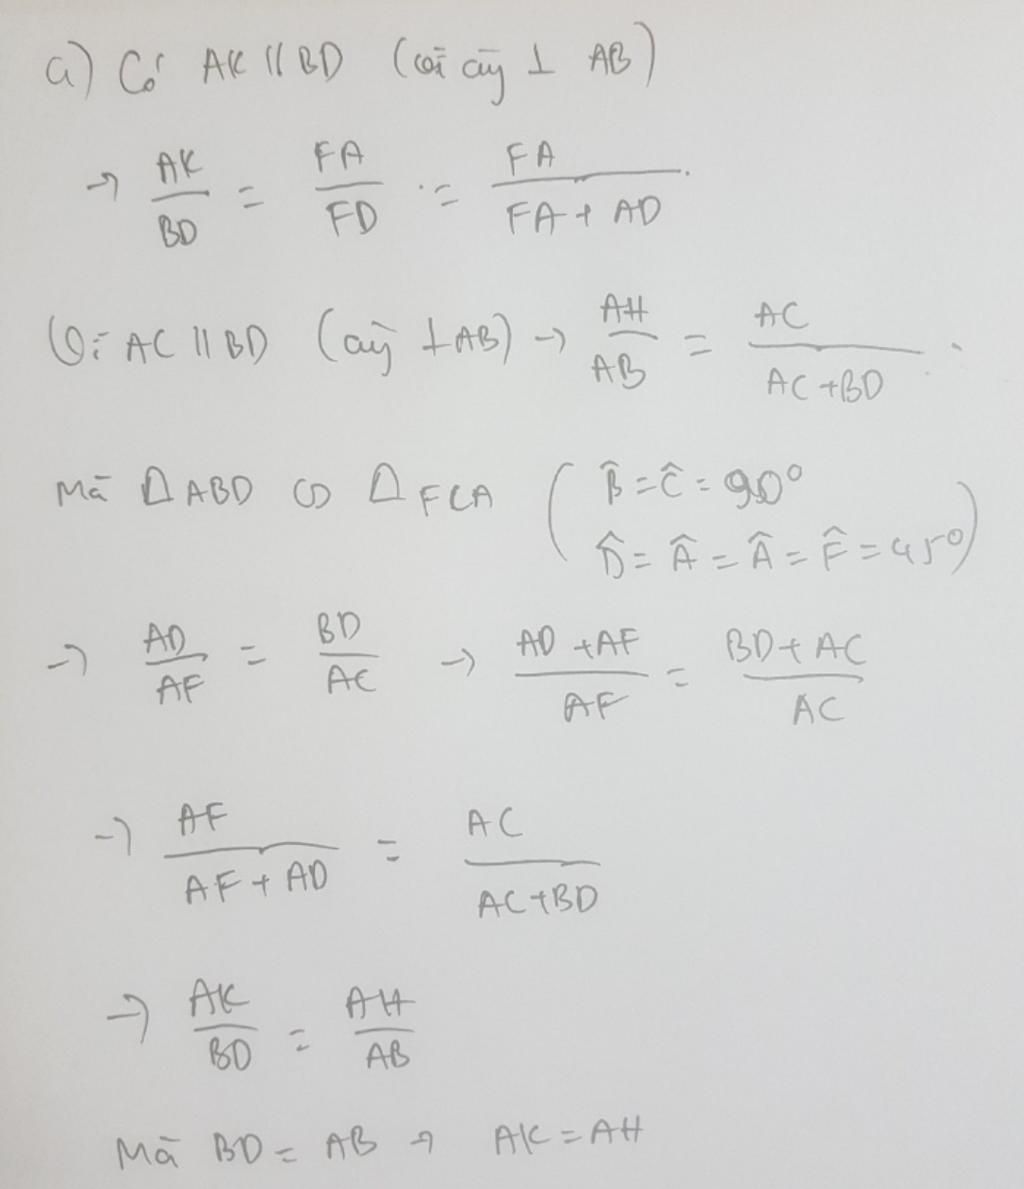 a) Có AK // BD (vì cùng ⊥ AB)
→ AK/BD = FA/FD = FA/(FA + AD)
Vì AC // BD (cùng ⊥ AB) → AH/AB = AC/(AC + BD).
Mà ΔABD ∽ ΔFCA (B̂ = Ĉ = 90°
D̂ = Â = Â = F̂ = 45°)
→ AD/AF = BD/AC → (AD + AF)/AF = (BD + AC)/AC
→ AF/(AF + AD) = AC/(AC + BD)
→ AK/BD = AH/AB
Mà BD = AB → AK = AH